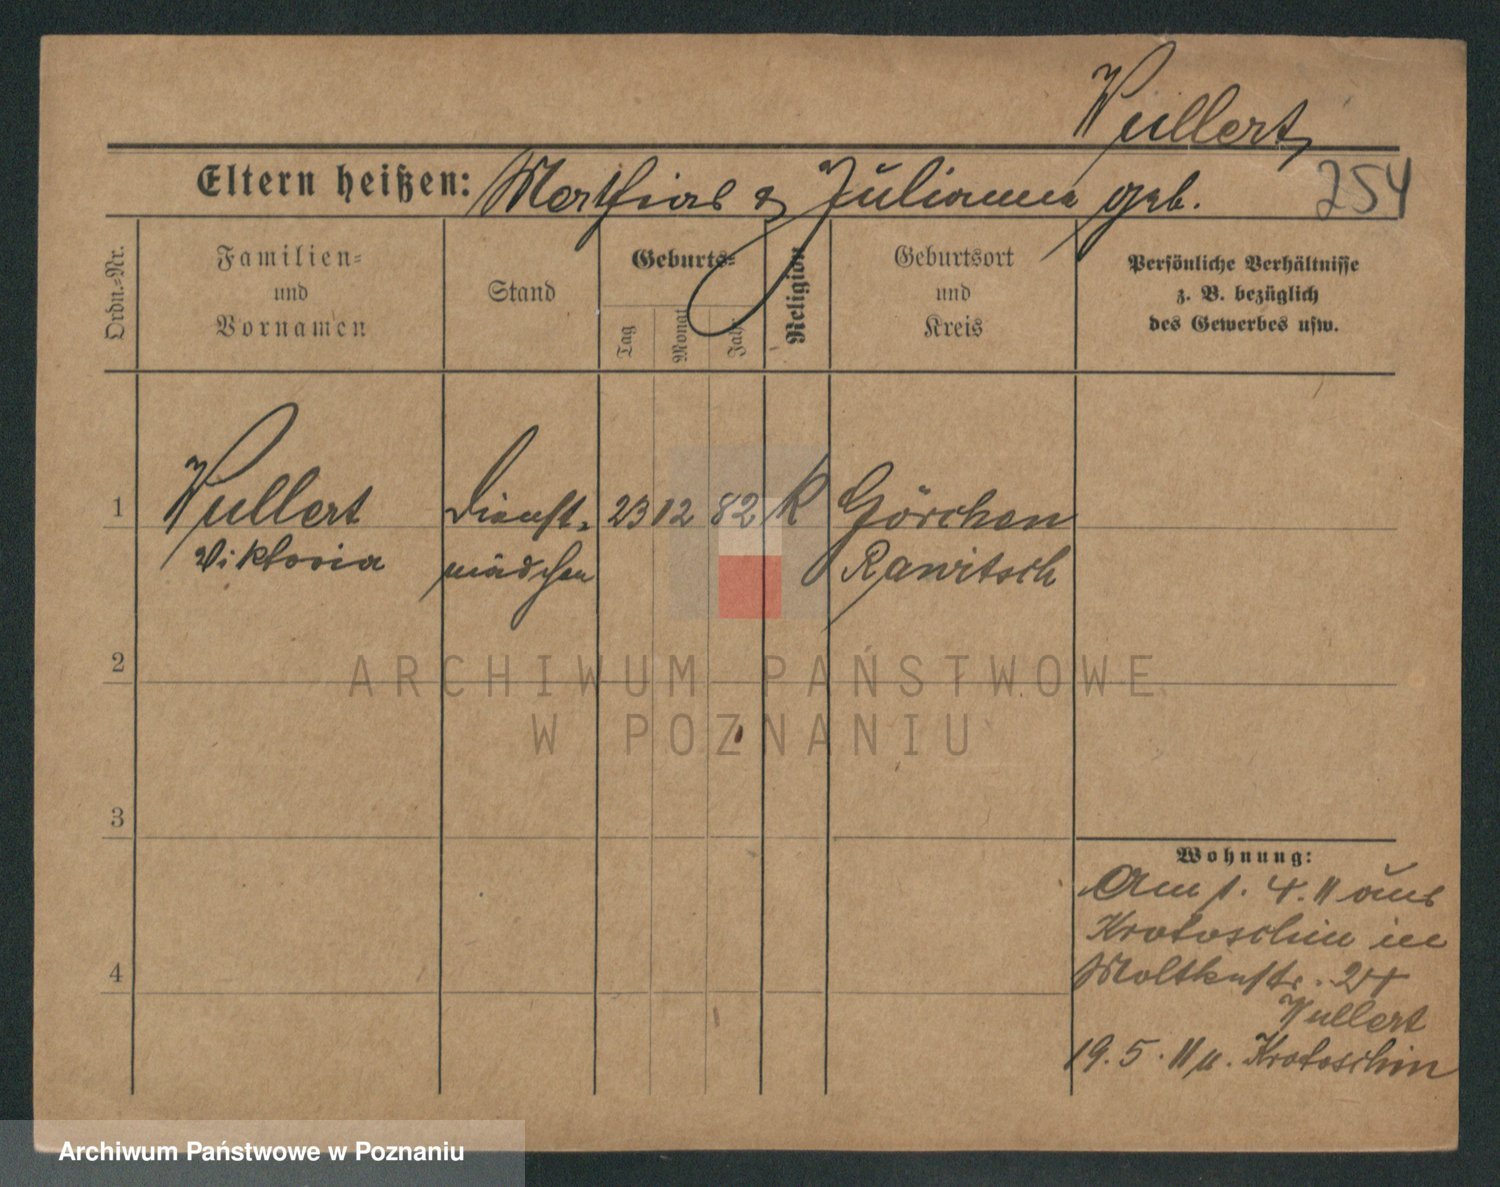 Vullert
Eltern heißen: Mathias & Julianna geb. 254
Ordn.-Nr.
Familien-
und
Vornamen
Stand
Geburts-
Tag
Monat
Jahr
Religion
Geburtsort
und
Kreis
Persönliche Verhältnisse
z. B. bezüglich
des Gewerbes usw.
1 Vullert Dienst- 23 12 82 K Görchen
Viktoria mädchen Rawitsch
2
ARCHIWUM PAŃSTWOWE
W POZNANIU
3
Wohnung:
Am 1. 4. 11 aus
Krotoschin in
Moltkestr. 24
Vullert
4
19. 5. 11 n. Krotoschin
Archiwum Państwowe w Poznaniu